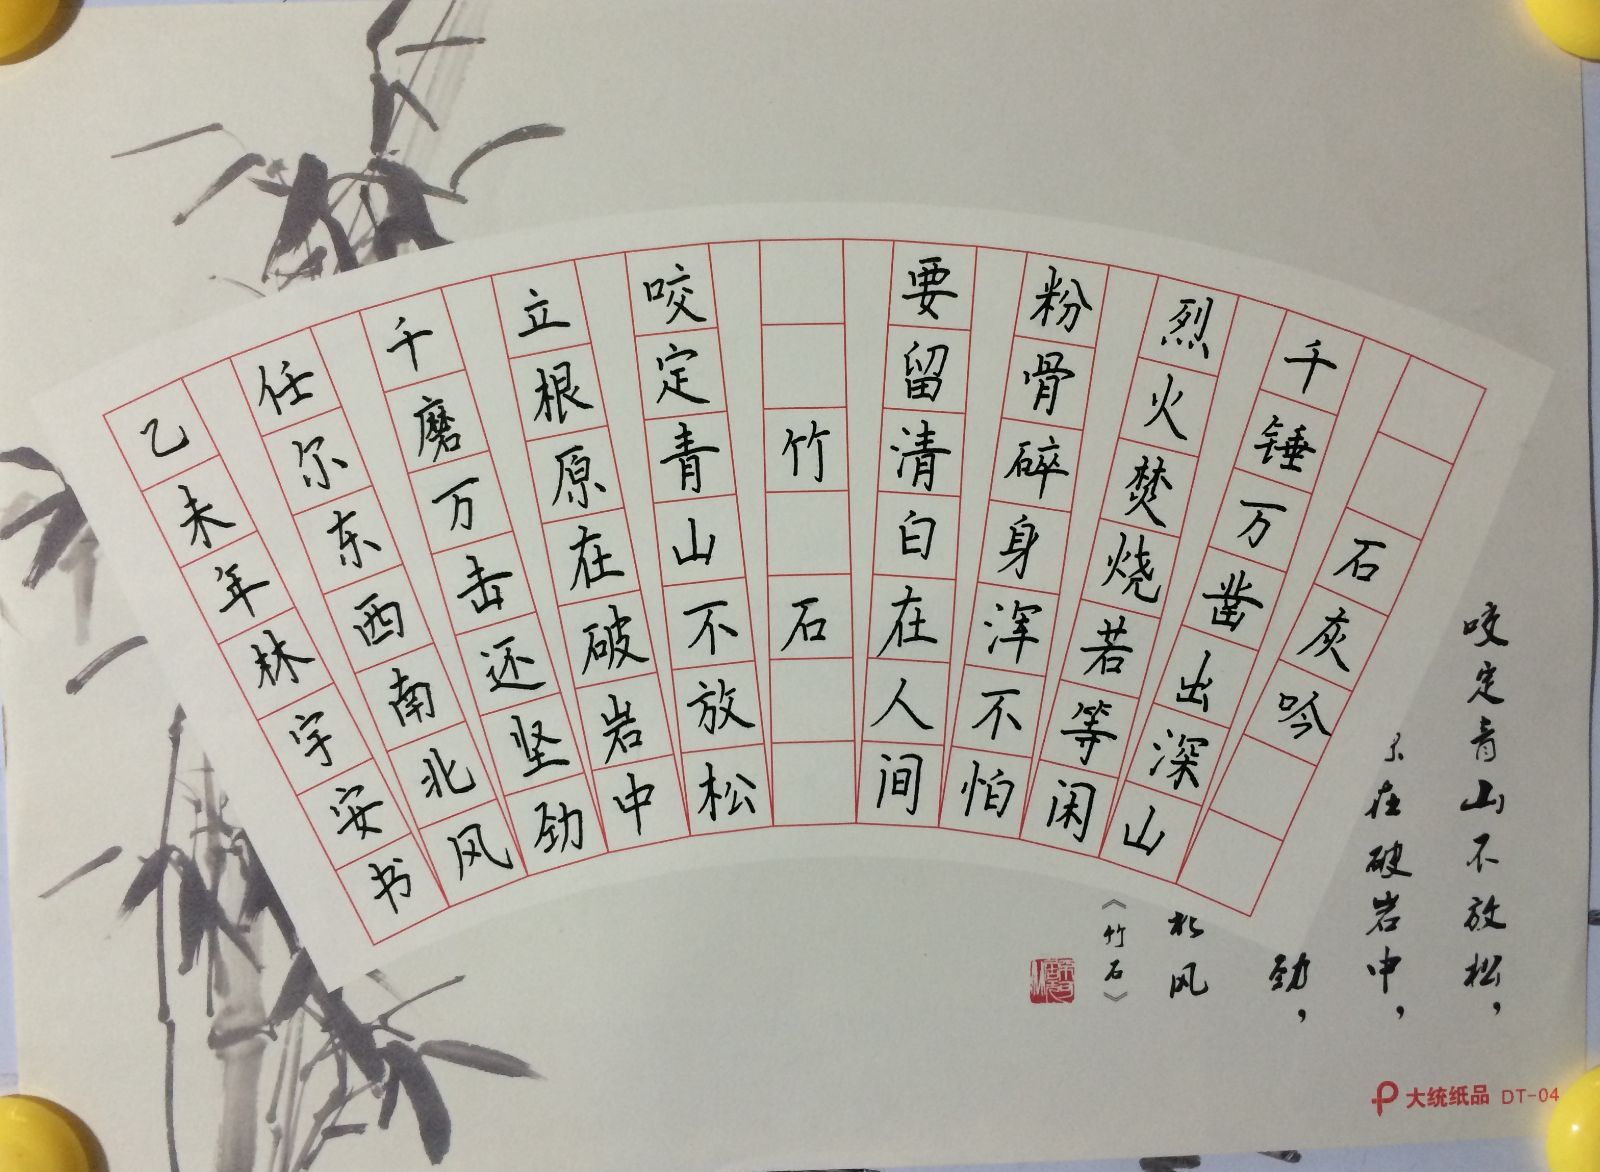 石灰吟
千锤万凿出深山
烈火焚烧若等闲
粉骨碎身浑不怕
要留清白在人间
竹石
咬定青山不放松
立根原在破岩中
千磨万击还坚劲
任尔东西南北风
乙未年林宇安书
咬定青山不放松，
在破岩中，
劲，
风
《竹石》
大统纸品 DT-04